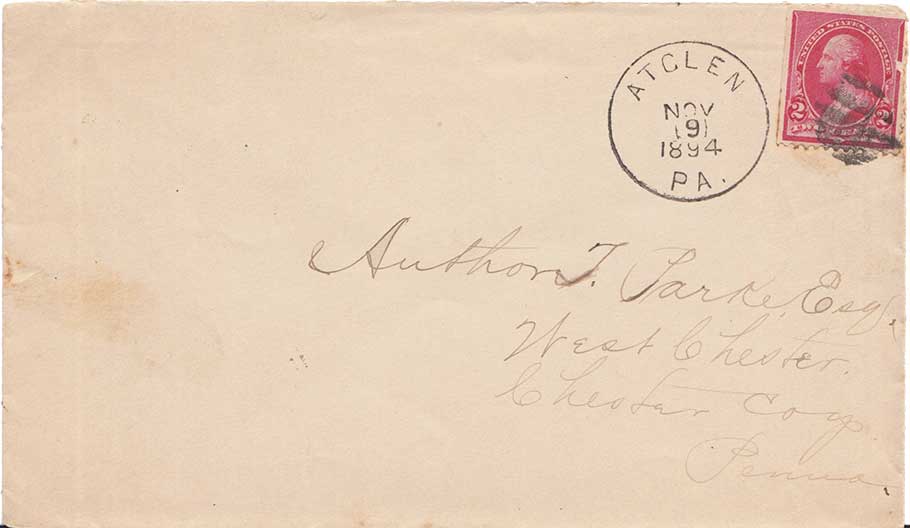 UNITED STATES POSTAGE
2 2
ATGLEN
NOV
19
1894
PA.
Author T. Parke, Esq.
West Chester.
Chester Co
Penna.